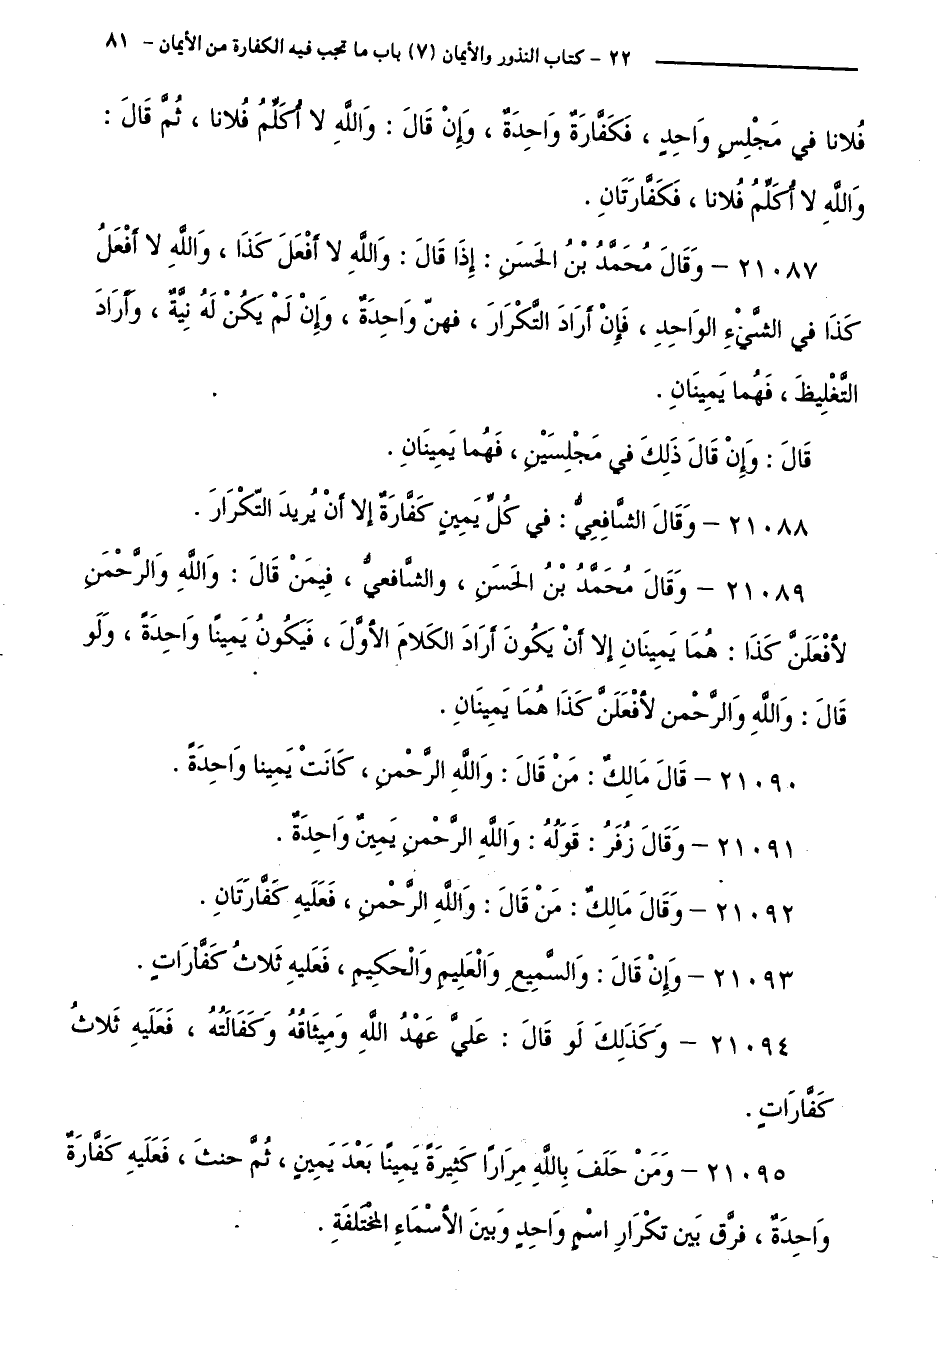 ٢٢ – كتاب النذور والأيمان (٧) باب ما تجب فيه الكفارة من الأيمان – ٨١
فُلانا في مَجْلِسٍ وَاحِدٍ ، فَكَفَّارَةٌ وَاحِدَةٌ ، وَإِنْ قَالَ : وَاللَّهِ لا أُكَلِّمُ فُلانا ، ثُمَّ قَالَ :
وَاللَّهِ لا أُكَلِّمُ فُلانا ، فَكَفَّارَتَانِ .
٢١٠٨٧ – وَقَالَ مُحَمَّدُ بْنُ الحَسَنِ : إِذَا قَالَ : وَاللَّهِ لا أَفْعَلَ كَذَا ، وَاللَّهِ لا أَفْعَلُ
كَذَا في الشَّيْءِ الوَاحِدِ ، فَإِنْ أَرَادَ التَّكْرَارَ ، فهنّ وَاحِدَةٌ ، وَإِنْ لَمْ يَكُنْ لَهُ نِيَّةٌ ، وَأَرَادَ
التَّغْلِيظَ ، فَهُما يَمِينَانِ .
قَالَ : وَإِنْ قَالَ ذَلِكَ في مَجْلِسَيْنِ ، فَهُما يَمِينَانِ .
٢١٠٨٨ – وَقَالَ الشَّافِعِيُّ : في كُلِّ يَمِينٍ كَفَّارَةٌ إلا أَنْ يُرِيدَ التّكْرَارَ .
٢١٠٨٩ – وَقَالَ مُحَمَّدُ بْنُ الحَسَنِ ، والشَّافعيُّ ، فِيمَنْ قَالَ : وَاللَّهِ وَالرَّحْمَنِ
لأفْعَلَنَّ كَذَا : هُمَا يَمِينَانِ إلا أَنْ يَكُونَ أَرَادَ الكَلامَ الأوَّلَ ، فَيَكُونُ يَمِينًا وَاحِدَةً ، وَلَو
قَالَ : وَاللَّهِ وَالرَّحْمن لأفْعَلَنَّ كَذَا هُمَا يَمِينَانِ .
٢١٠٩٠ – قَالَ مَالِكٌ : مَنْ قَالَ : وَاللَّهِ الرَّحْمنِ ، كَانَتْ يَمِينا وَاحِدَةً .
٢١٠٩١ – وَقَالَ زُفَرُ : قَوْلُهُ : وَاللَّهِ الرَّحْمنِ يَمِينٌ وَاحِدَةٌ .
٢١٠٩٢ – وَقَالَ مَالِكٌ : مَنْ قَالَ : وَاللَّهِ الرَّحْمنِ ، فَعَلَيهِ كَفَّارَتَانِ .
٢١٠٩٣ – وَإِنْ قَالَ : وَالسَّمِيعِ وَالْعَلِيمِ وَالْحَكِيمِ ، فَعَليهِ ثَلاثُ كَفَّارَاتٍ .
٢١٠٩٤ – وَكَذَلِكَ لَو قَالَ : عَلَيَّ عَهْدُ اللَّهِ وَمِيثَاقُهُ وَكَفَالَتُهُ ، فَعَلَيهِ ثَلاثُ
كَفَّارَاتٍ .
٢١٠٩٥ – وَمَنْ حَلَفَ بِاللَّهِ مِرَارًا كَثِيرَةً يَمِينًا بَعْدَ يَمِينٍ ، ثُمَّ حنثَ ، فَعَلَيهِ كَفَّارَةٌ
وَاحِدَةٌ ، فرَّق بَين تكْرَارِ اسْمٍ وَاحِدٍ وَبَينَ الأسْمَاءِ المُخْتَلفَةِ .